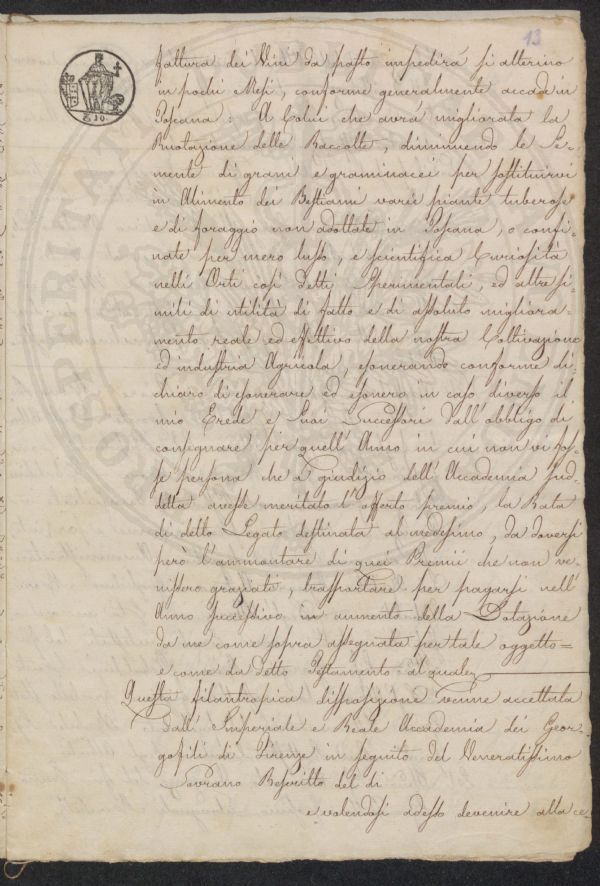 13
fattura dei Vini da pasto impedirà si alterino
in pochi Mesi, conforme generalmente accade in
Toscana: A Colui che avrà migliorata la
Ruotazione delle Raccolte, diminuendo le Se=
mente di grani e graminacei per sostituirvi
in Alimento dei Bestiami varie piante tuberose
e di foraggio non adottate in Toscana, o confi=
nate per mero lusso, e scientifica Curiosità
nelli Orti così detti Sperimentali, ed altre si=
mili di utilità di fatto e di assoluto migliora=
mento reale ed effettivo della nostra Coltivazione
ed industria Agricola, esonerando conforme di=
chiaro di esonerare ed esonero in caso diverso il
mio Erede e Suoi Successori dall'obbligo di
consegnare per quell'Anno in cui non vi fos=
se persona che a giudizio dell'Accademia sud=
detta avesse meritato l'offerto premio, la Rata
di detto Legato destinata al medesimo, da doversi
però l'ammontare di quei Premii che non ve=
nissero graziati, trasportare per pagarsi nell'
Anno successivo in aumento della Dotazione
da me come sopra assegnata per tale oggetto=
e come da detto Testamento al quale
Questa filantropica disposizione venne accettata
dall'Imperiale e Reale Accademia dei Geor=
gofili di Firenze in seguito del Veneratissimo
Sovrano Rescritto del dì
e volendosi adesso devenire alla ce
PROSPERITATI